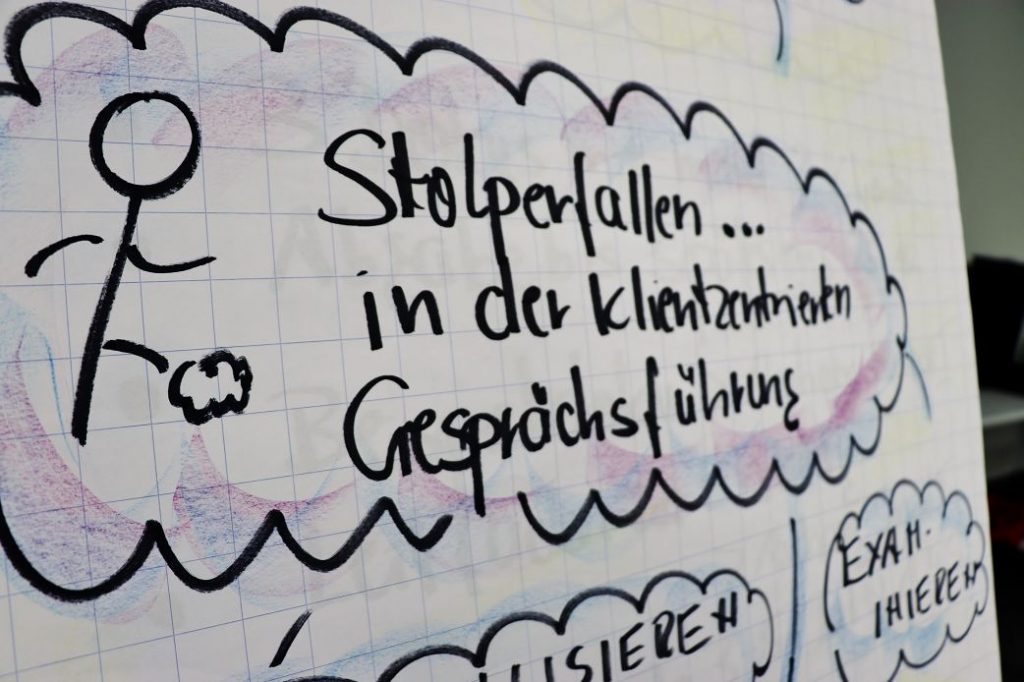 Stolperfallen...
in der klientzentrierten
Gesprächsführung
EXAM-
INIEREN